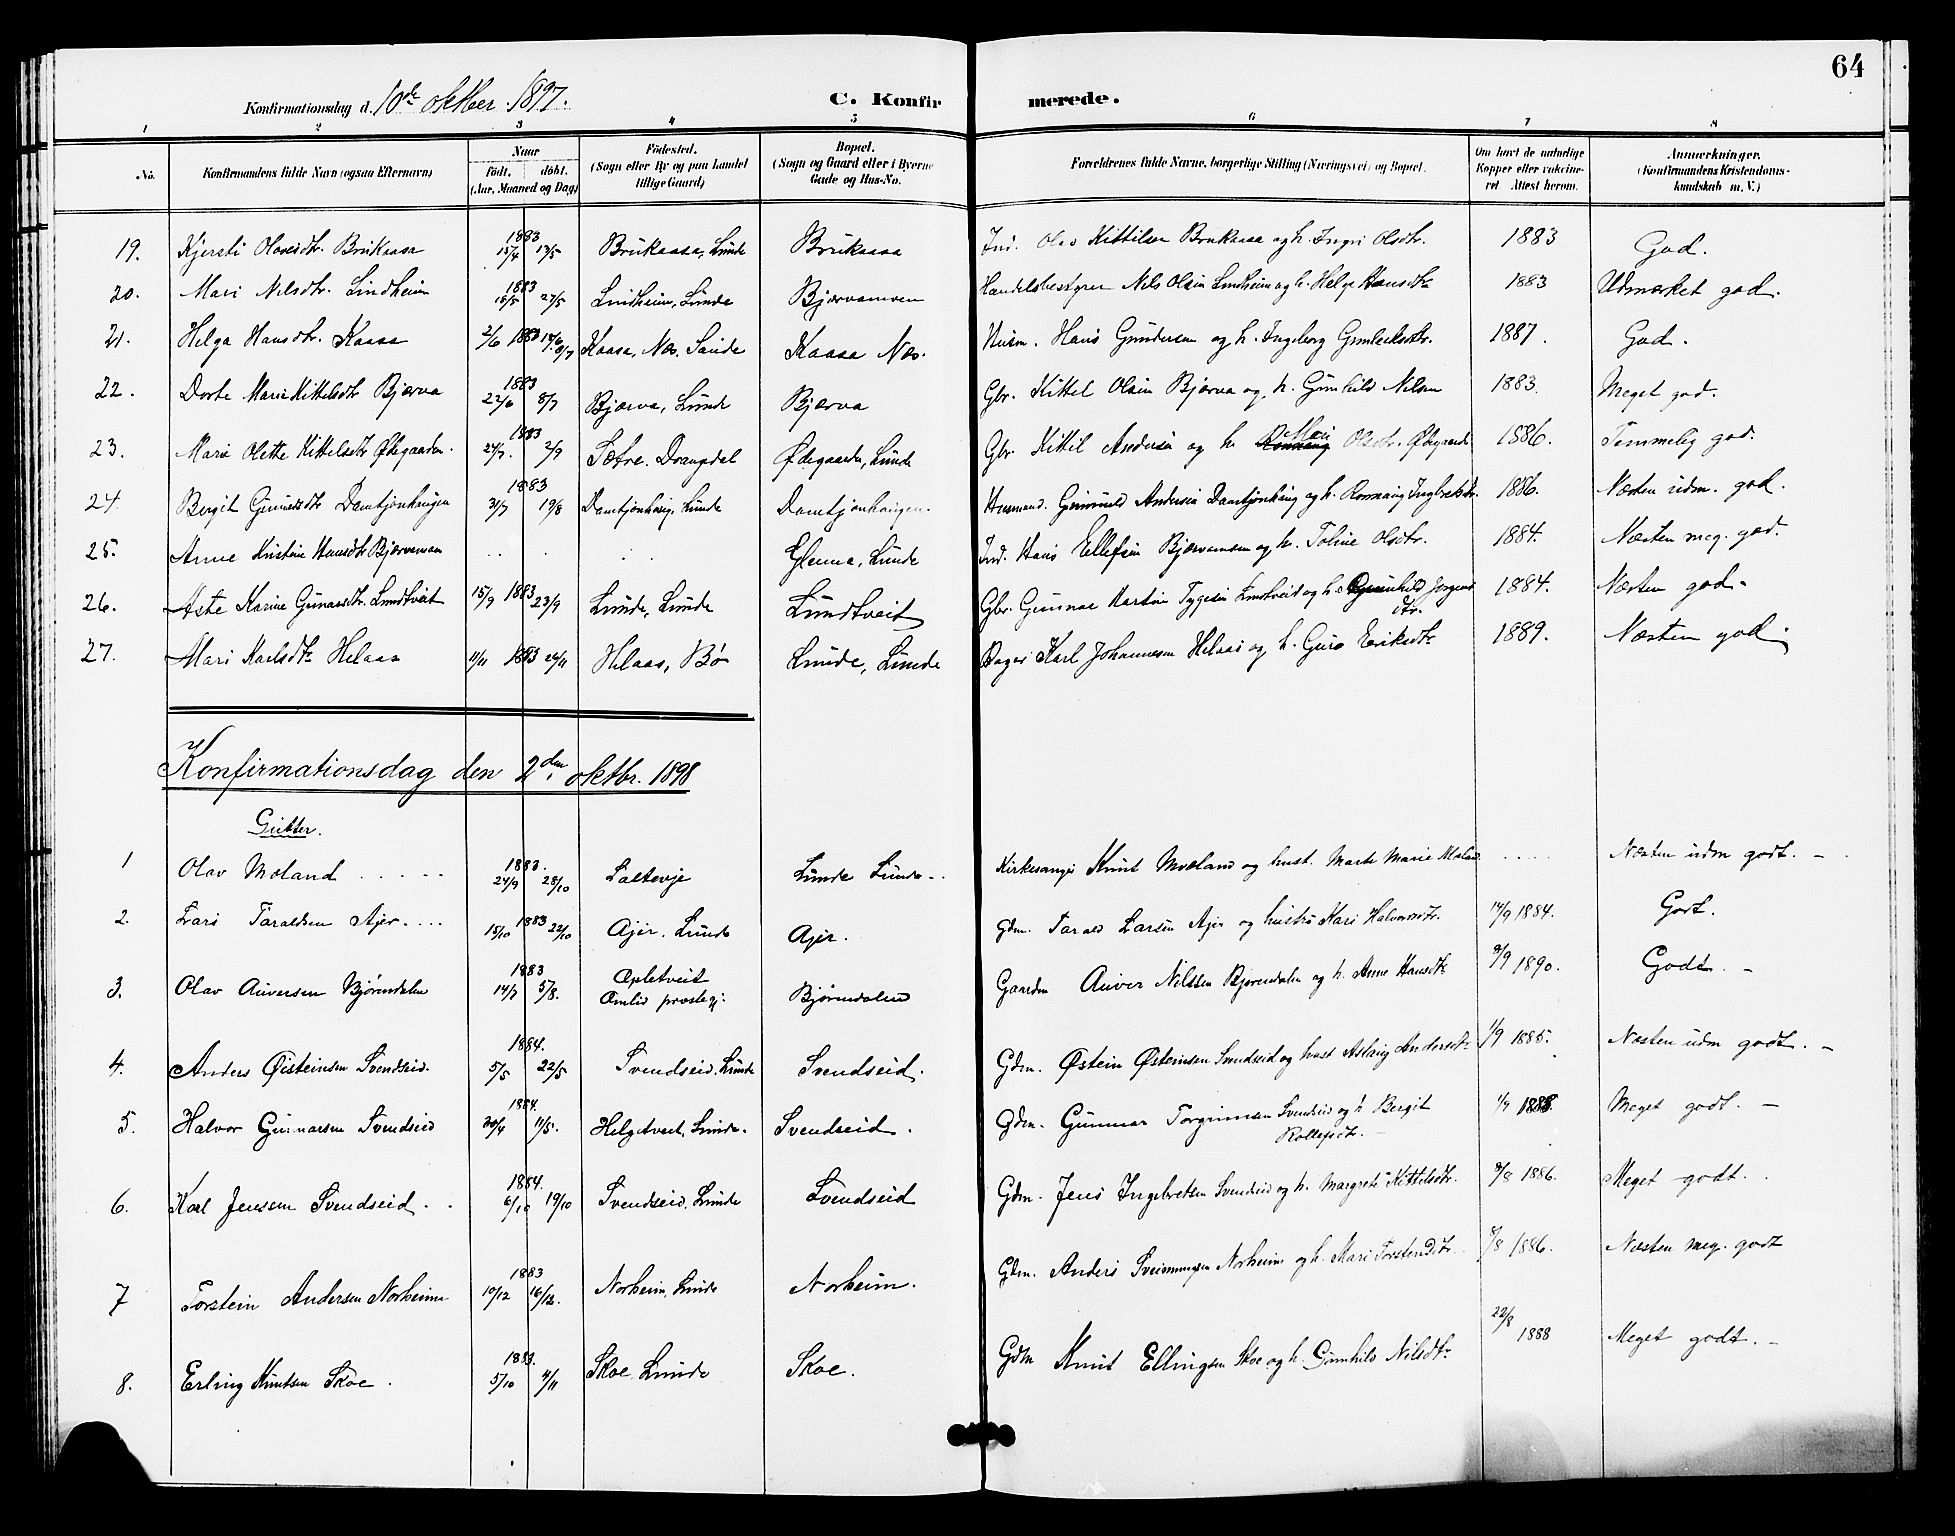 64
Konfirmationsdag d. 10de oktber 1897. C. Konfirmerede.
1 2 3 4 5 6 7 8
No. Konfirmandens fulde Navn (ogsaa Efternavn) Naar født. døbt. (Aar, Maaned og Dag) Fødested. (Sogn eller By og paa Landet tillige Gaard) Bopæl. (Sogn og Gaard eller i Byerne Gade og Hus-No. Forældrenes fulde Navne, borgerlige Stilling (Næringsvei) og Bopæl. Om havt de naturlige Kopper eller vaccineret Attest herom. Anmærkninger. (Konfirmandens Kristendomskundskab m. V.)
19. Kjersti Olavsdtr. Brukaasa 1883 15/4 13/5 Brukaasa, Lunde Brukaasa Ind. Olav Kittilsen Brukaasa og h. Ingri Olsdtr. 1883 God.
20. Mari Nilsdtr. Lindheim 1883 18/5 27/5 Lindheim, Lunde Bjærvamoen Handelsbestyrer Nils Olsen Lindheim og h. Helge Hansdtr 1883 Udmærket god.
21. Helga Hansdtr. Kaasa 2/6 1883 8/7 Kaasa, Næs. Saude Kaasa Næs. Husm. Hans Gundersen og h. Ingeborg Gunleiksdtr. 1887. God.
22. Dorte Marie Kittelsdtr Bjærva 1883 22/6 8/7 Bjærva, Lunde Bjærva Gbr. Kittel Olsen Bjærva og h. Gunhild Nilsen 1883. Meget god.
23. Marie Olette Kittelsdtr Ødegaarden. 1883 24/7. 2/9 Sætre. Drangedal Ødegaarden, Lunde Gbr. Kittil Andersen og h. Mari Olsdtr. Ødegaarde 1886. Temmelig god.
24. Bergit Gunuldsdtr Damtjønhaugen 1883 31/7 19/8 Damtjønhaug, Lunde Damtjønhaugen. Husmand. Gunnuld Andersen Damtjønhaug og h. Ronnaug Ingbretsdtr. 1886. Næsten udm. god.
25. Anne Kristine Hansdtr Bjærvamoen .. .. . Glenna, Lunde Ind. Hans Ellefsen Bjærvamoen og h. Toline Olsdtr. 1884. Næsten meg. god.
26. Aste Karine Gunarsdtr. Lundtveit 15/9 1883 23/9 Lunde, Lunde Lundtveit Gbr. Gunnar Martin Tygesen Lundtveid og h. Gunhild Jørgensdtr. 1884. Næsten god.
27. Mari Karlsdtr Helaas 11/11 1883 24/11 Helaas, Bø Lunde, Lunde Bager Karl Johannesen Helaas og h. Guro Eriksdtr 1889. Næsten god.
Konfirmationsdag den 2den oktbr. 1898
Gutter.
1 Olav Moland ..... 1883. 24/9 28/10 Saltevje Lunde Lunde.. Kirkesanger Knut Moeland og hust. Marte Marie Moland .... Næsten udm godt. -
2. Lars Taraldsen Ajer.... 15/10 1883 22/10 Ajer. Lunde Ajer. Gdm. Tarald Larsen Ajer og hustru Kari Halvorsdtr. 14/9 1884. Godt.
3. Olav Auversen Bjørndalen 1883 14/7 5/8. Opletveit Omlid prostegj: Bjørndalen Gaardm Auver Nilssen Bjørndalen og h. Anne Hansdtr 9/9 1890. Godt. -
4. Anders Øisteinsen Svendseid. 1884. 5/5 22/5 Svendseid, Lunde Svendseid. Gdm. Østein Østeinsen Svendseid og hust Aslaug Andersdtr 1/9 1885. Næsten udm godt. -
5. Halvor Gunnarsen Svendseid 1884. 20/4 11/5. Helgetveit, Lunde. Svendseid. Gdm. Gunnar Torgrimsen Svendseid og h Bergit Rollefsdtr. 1/9 1888. Meget godt. -
6. Karl Jenssen Svendseid .. 1884. 6/10 19/10 Svendseid, Lunde Svendseid Gdm. Jens Ingebretsen Svendseid og h. Margrete Kittelsdtr. 9/8 1886. Meget godt.
7 Torstein Andersen Norheim 1883 10/12 16/12. Norheim, Lunde Norheim. Gdm. Anders Sveinungsen Norheim og h. Mari Torstensdtr. 8/8 1886. Næsten meg. godt
8. Erling Knutsen Skoe. 1883. 5/10 4/11 Skoe Lunde Skoe. Gdm Knut Ellingsen Skoe og h. Gunhild Nilsdtr 22/8 1888 Meget godt. -